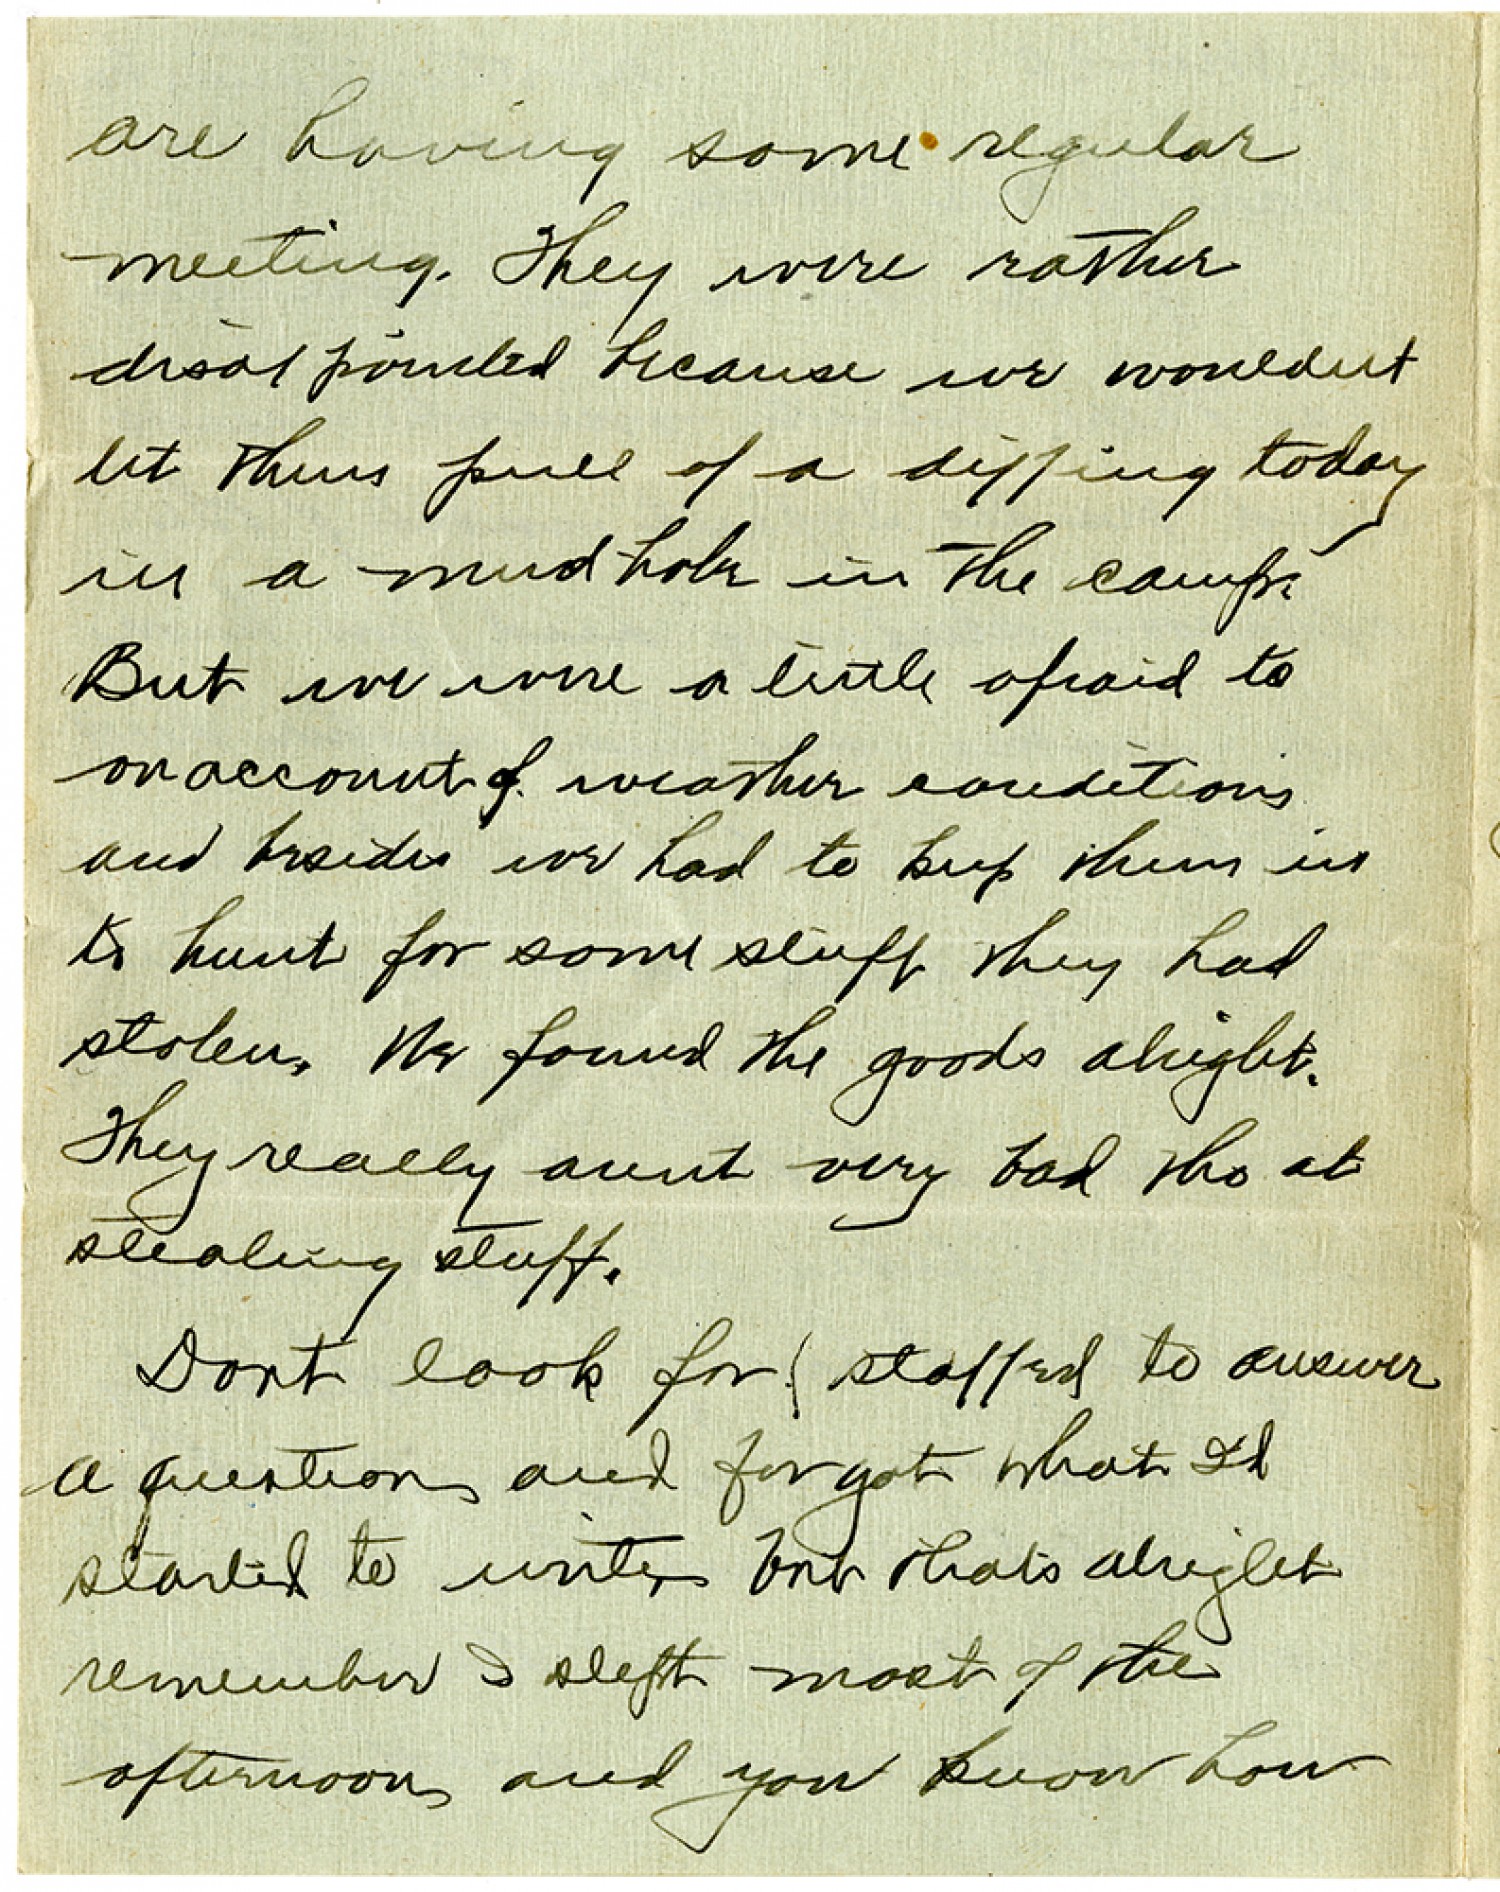 are having some regular
meeting. They were rather
disappointed because we wouldnt
let them pull of a dipping today
in a mudhole in the camp.
But we were a little afraid to
on account of weather conditions
and besides we had to keep them in
to hunt for some stuff they had
stolen. We found the goods alright.
They really arent very bad tho at
stealing stuff.
Dont look for ( stopped to answer
a question and forgot what Id
started to write, but thats alright
remember I slept most of the
afternoon and you know how